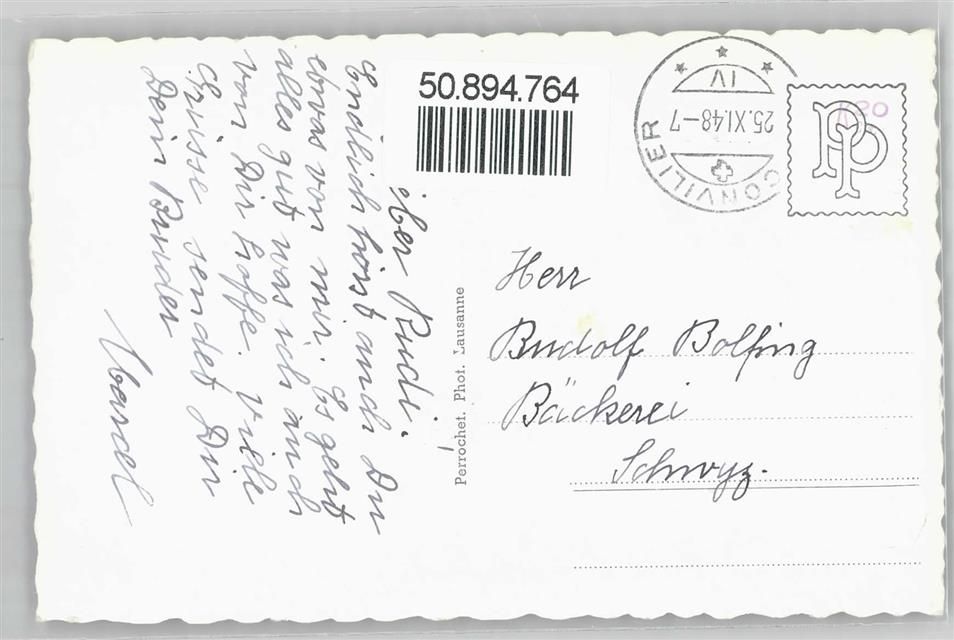 50.894.764
SONVILIER
25.XI.48-7
IV
PP
Lieber Rudi.
Endlich hörst auch Du
etwas von mir. Es geht
alles gut was ich auch
von Dir hoffe. Viele
Grüsse sendet Dir
Dein Bruder
Marcel
Perrochet. Phot. Lausanne
Herr
Rudolf Bolfing
Bäckerei
Schwyz.